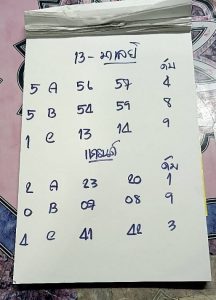 13 - มาเลย์
ดับ
5 A 56 57 4
5 B 54 59 8
1 C 13 14 9
ดับ
2 A 23 20 1
0 B 07 08 9
4 C 41 42 3